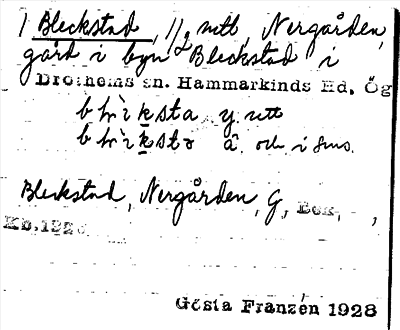 1 Bleckstad, 1/2 mtl, Nergården,
gård i byn Bleckstad i
Drothems sn. Hammarkinds Hd. Ög
y. mtl
â. och i sms.
Bleckstad, Nergården, G, Bok,
Kb.
Gösta Franzén 1928